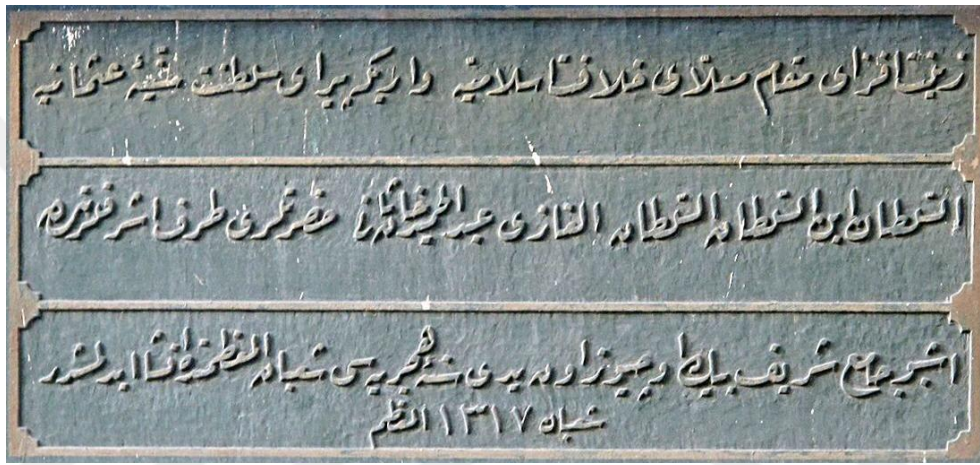 زينت افزاى مقام معلاى خلافت اسلاميه و اريكه پيراى سلطنت سنيۀ عثمانيه
السلطان ابن السلطان السلطان الغازى عبد الحميد خان ثانى حضرتلرى طرف اشرفلرندن
اشبو جامع شريف بيك اوچيوز اون يدى سنۀ هجريه سى شعبان المعظمنده انشا ايدلمشدر
شعبان ١٣١٧ المعظم